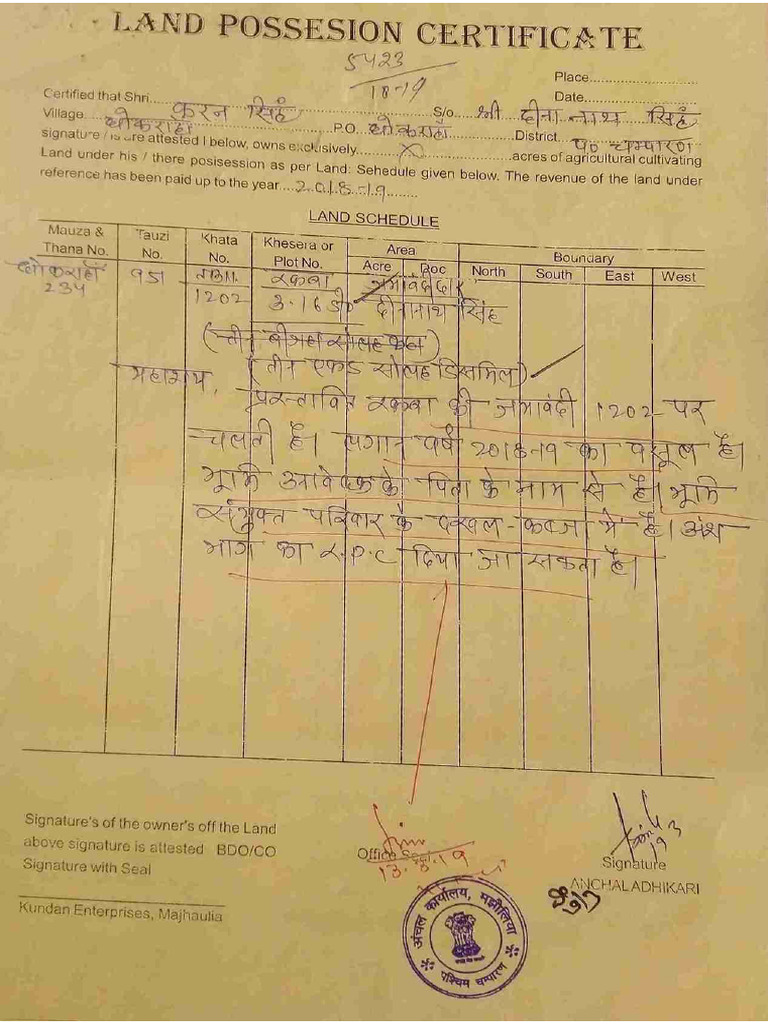 LAND POSSESION CERTIFICATE
5423
18-19
Place..................
Date..................
Certified that Shri.... करन सिंह ....S/o. श्री दीना नाथ सिंह
Village... धोकराहाँ ....P.O. धोकराहाँ ....District... प० चम्पारण
signature / is are attested I below, owns exclusively........X........acres of agricultural cultivating
Land under his / there posisession as per Land. Sehedule given below. The revenue of the land under
reference has been paid up to the year....2018-19........
LAND SCHEDULE
Mauza & Thana No. Tauzi No. Khata No. Khesera or Plot No. Area Boundary
Acre Doc North South East West
धोकराहाँ 951 रकबा जमाबंदीदार
234 1202 3.16 डी० दीनानाथ सिंह
(तीन एकड़ सोलह डिसमिल)
महाशय,
प्रस्तावित रकबा की जमाबंदी 1202 पर
चलती है। लगान वर्ष 2018-19 का वसूल है।
भूमि आवेदक के पिता के नाम से है। भूमि
संयुक्त परिवार के दखल-कब्जा में है। अंश
भाग का L.P.C दिया जा सकता है।
Signature's of the owner's off the Land
above signature is attested BDO/CO
Signature with Seal
Office Seal
13.3.19
Signature
ANCHALADHIKARI
Kundan Enterprises, Majhaulia
अंचल कार्यालय, मझौलिया
पश्चिम चम्पारण